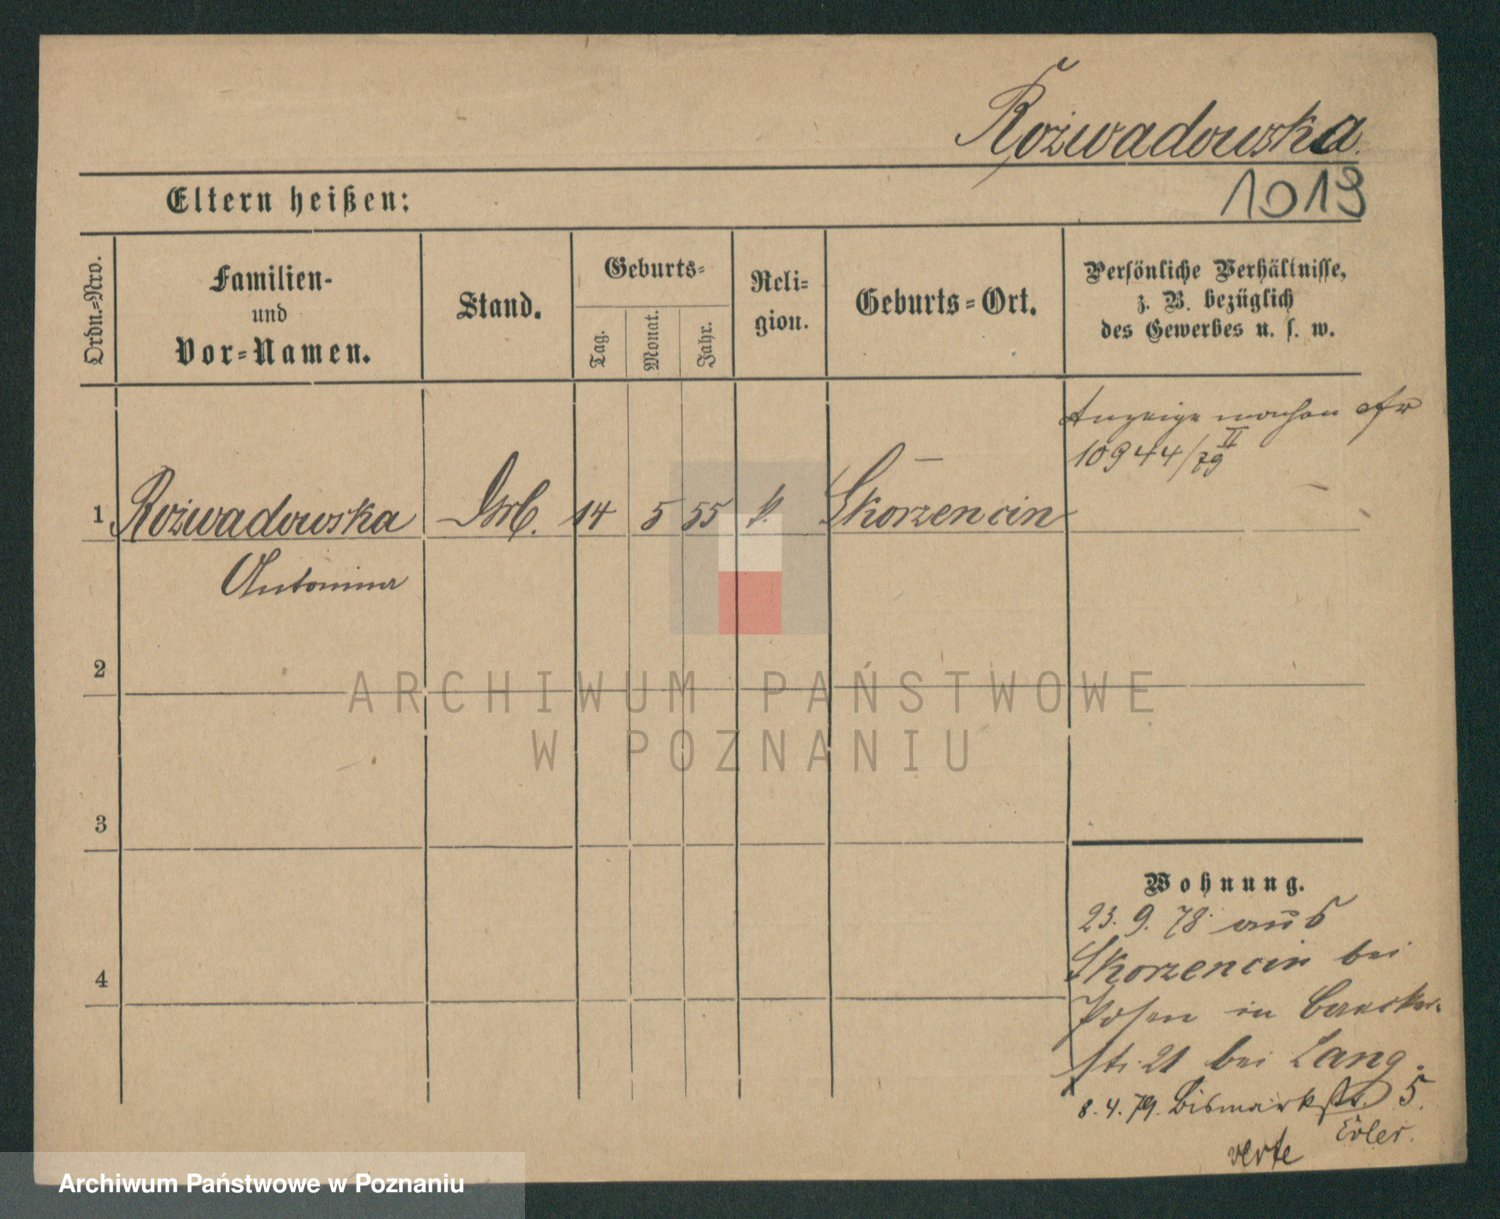 Rożwadowska
1019
Eltern heißen:
Ordn.-Nro.
Familien-
und
Vor-Namen.
Stand.
Geburts-
Tag.
Monat.
Jahr.
Reli-
gion.
Geburts-Ort.
Persönliche Verhältnisse,
z. B. bezüglich
des Gewerbes u. s. w.
Anzeige machen
10944/II 79
1 Rożwadowska 14 5 55 k. Skorzencin
Antonina
2
ARCHIWUM PAŃSTWOWE
W POZNANIU
3
4
Wohnung.
23. 9. 78 aus
Skorzencin bei
Posen in Baecker-
str. 21 bei Lang.
8. 4. 79. Bismarkstr. 5.
Erler.
verte
Archiwum Państwowe w Poznaniu